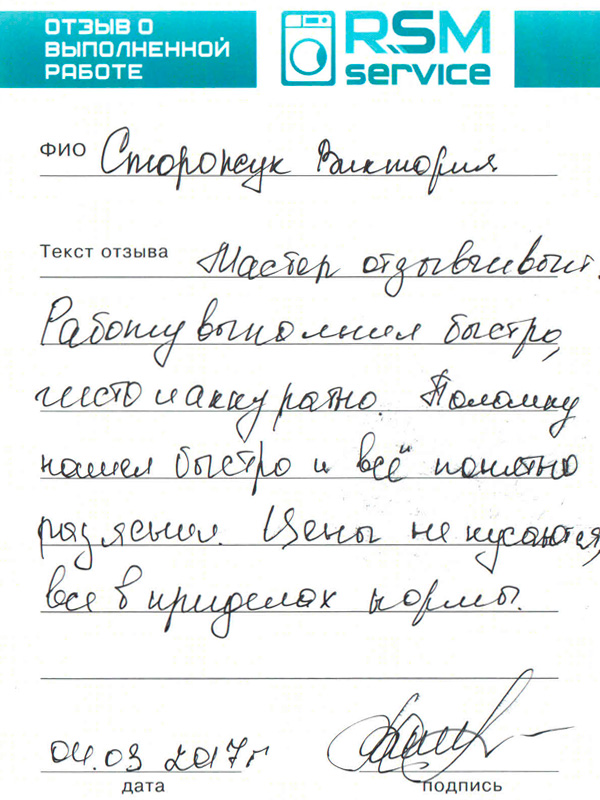 ОТЗЫВ О
ВЫПОЛНЕННОЙ
РАБОТЕ
RSM
service
ФИО Сторожук Виктория
Текст отзыва Мастер отзывчивый.
Работу выполнил быстро,
чисто и аккуратно. Поломку
нашел быстро и всё понятно
разяснил. Цены не кусаются,
все в приделах нормы.
04.03 2017г
дата
подпись